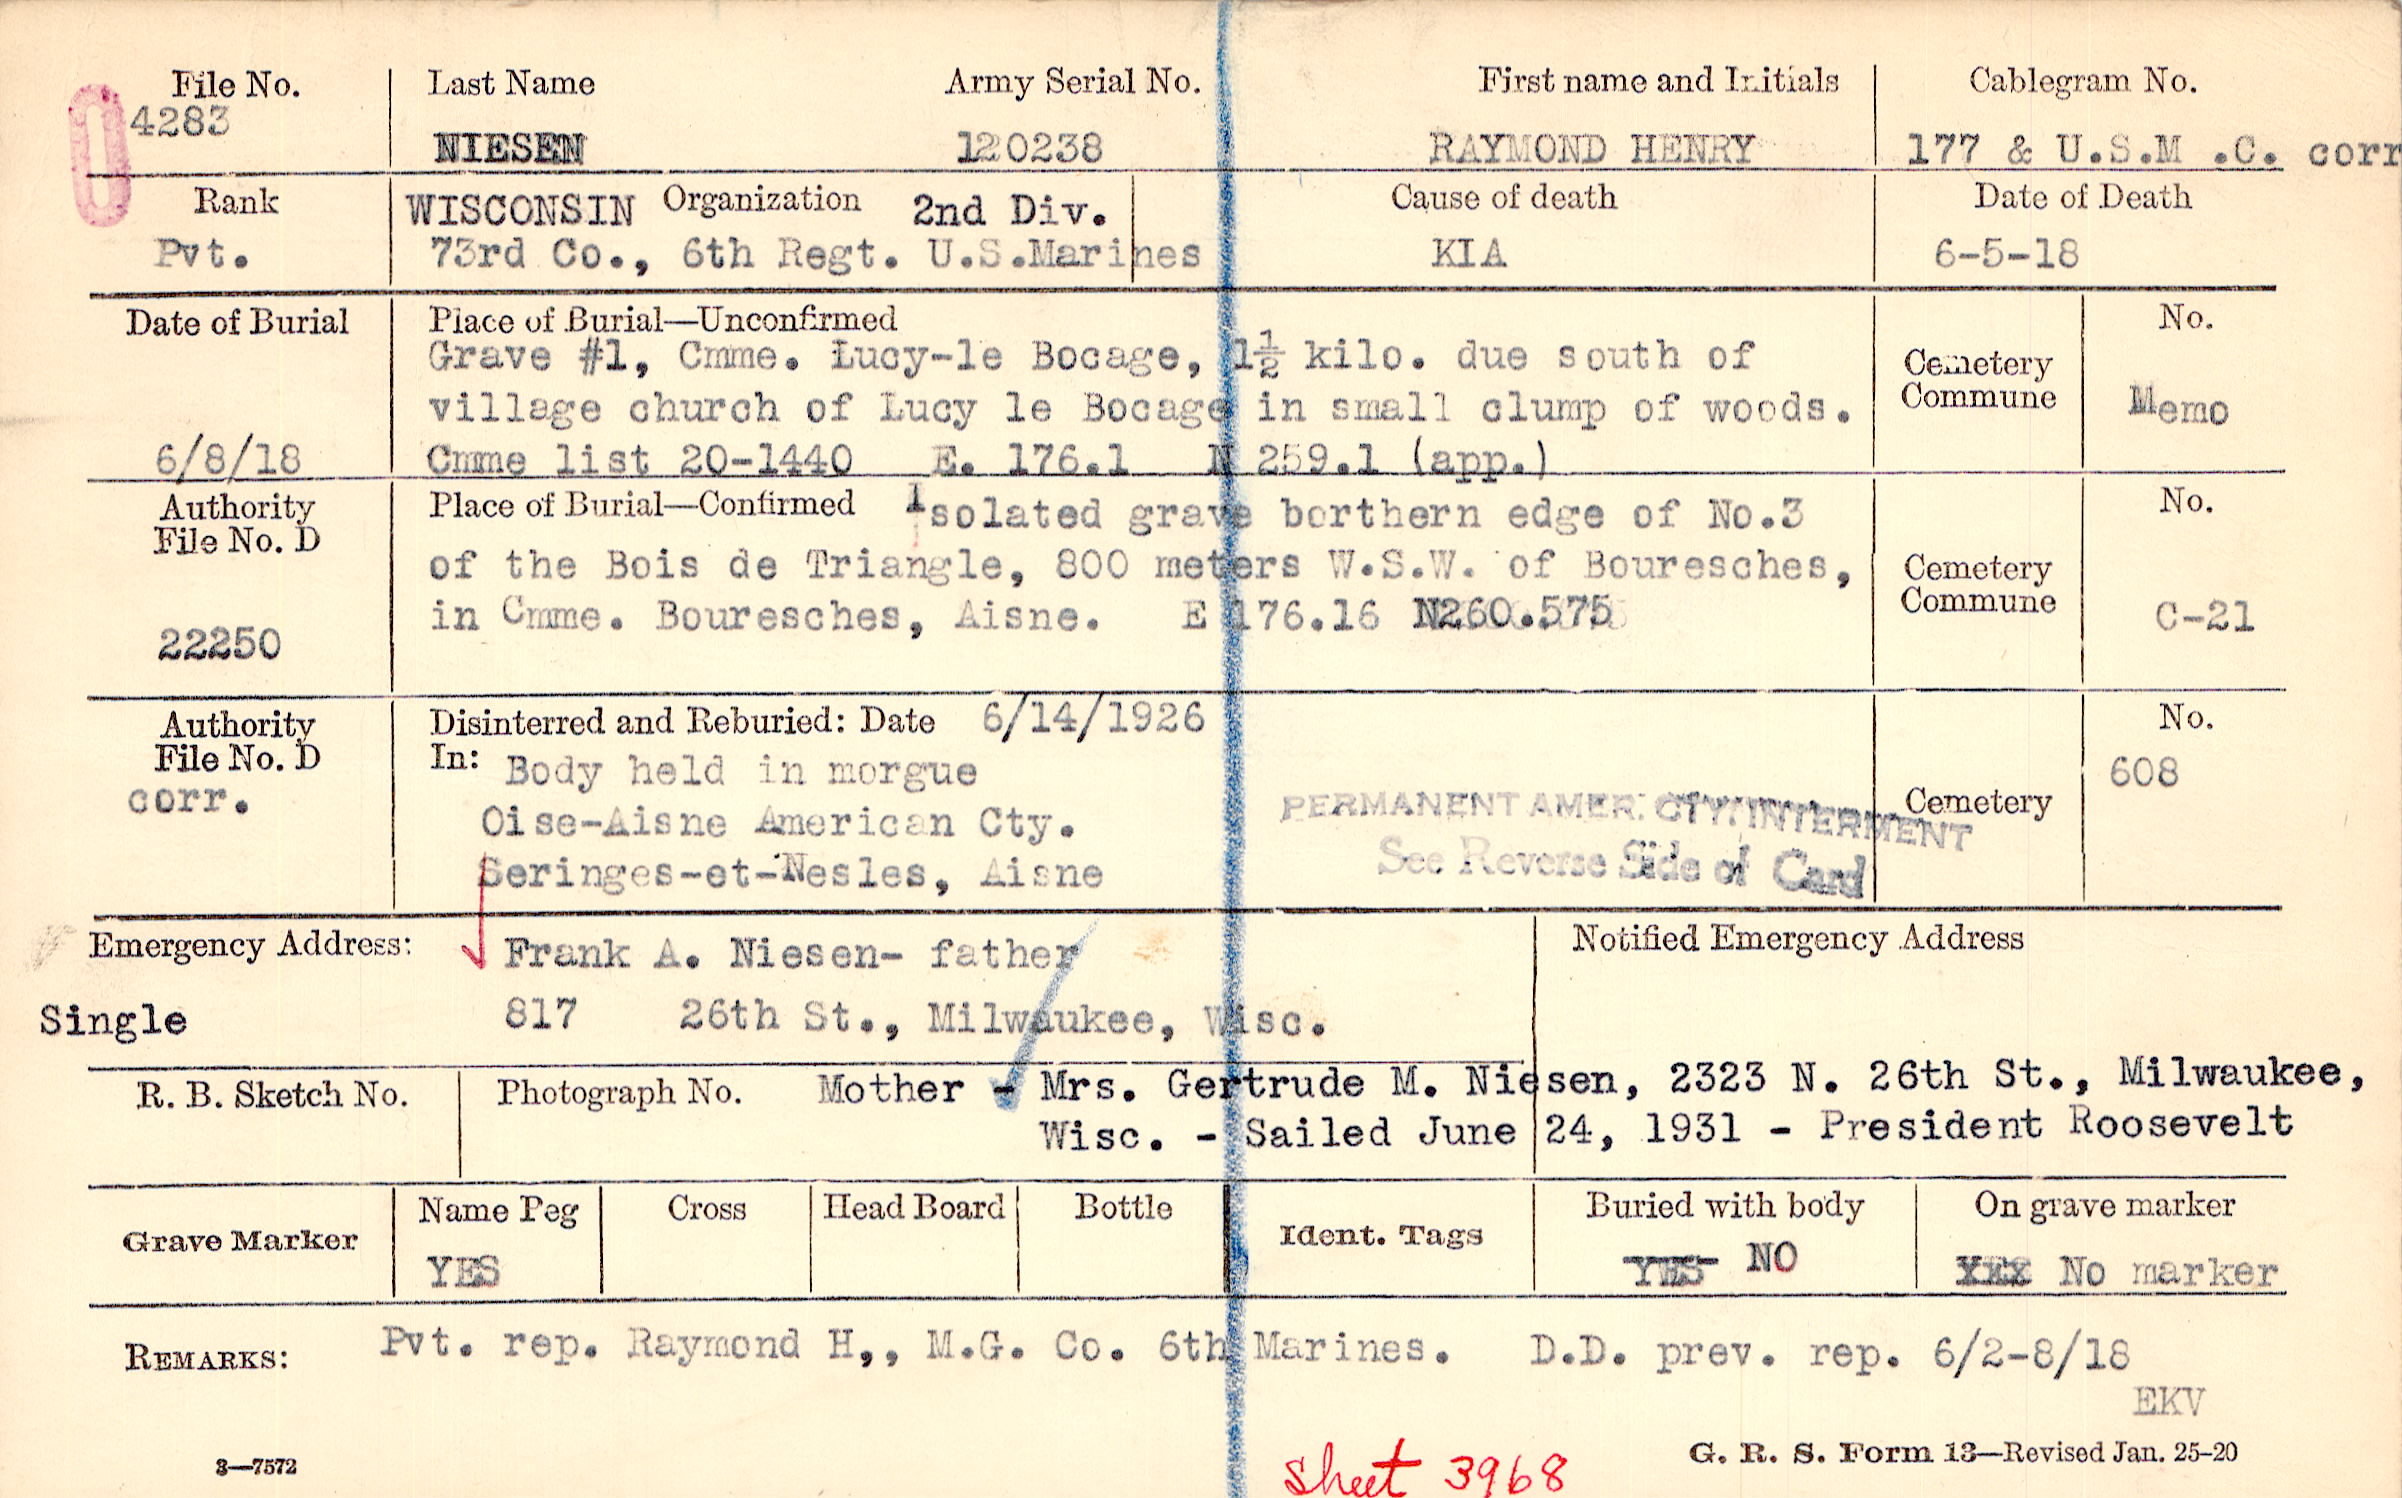 File No. Last Name Army Serial No. First name and Initials Cablegram No.
4283 NIESEN 120238 RAYMOND HENRY 177 & U.S.M .C. corr
Rank WISCONSIN Organization 2nd Div. Cause of death Date of Death
Pvt. 73rd Co., 6th Regt. U.S.Marines KIA 6-5-18
Date of Burial Place of Burial—Unconfirmed No.
Grave #1, Cmme. Lucy-le Bocage, 1½ kilo. due south of
Cemetery
village church of Lucy le Bocage in small clump of woods. Commune Memo
6/8/18 Cmme list 20-1440 E. 176.1 N 259.1 (app.)
Authority Place of Burial—Confirmed Isolated grave borthern edge of No.3 No.
File No. D
of the Bois de Triangle, 800 meters W.S.W. of Bouresches, Cemetery
in Cmme. Bouresches, Aisne. E 176.16 N260.575 Commune C-21
22250
Authority Disinterred and Reburied: Date 6/14/1926 No.
File No. D In: Body held in morgue 608
corr. Oise-Aisne American Cty. PERMANENT AMER. CTY. INTERMENT Cemetery
Seringes-et-Nesles, Aisne See Reverse Side of Card
Emergency Address: Frank A. Niesen- father Notified Emergency Address
Single 817 26th St., Milwaukee, Wisc.
R. B. Sketch No. Photograph No. Mother - Mrs. Gertrude M. Niesen, 2323 N. 26th St., Milwaukee,
Wisc. - Sailed June 24, 1931 - President Roosevelt
Grave Marker Name Peg Cross Head Board Bottle Ident. Tags Buried with body On grave marker
YES YES NO YES No marker
REMARKS: Pvt. rep. Raymond H,, M.G. Co. 6th Marines. D.D. prev. rep. 6/2-8/18
EKV
3—7572 Sheet 3968 G. R. S. Form 13—Revised Jan. 25-20